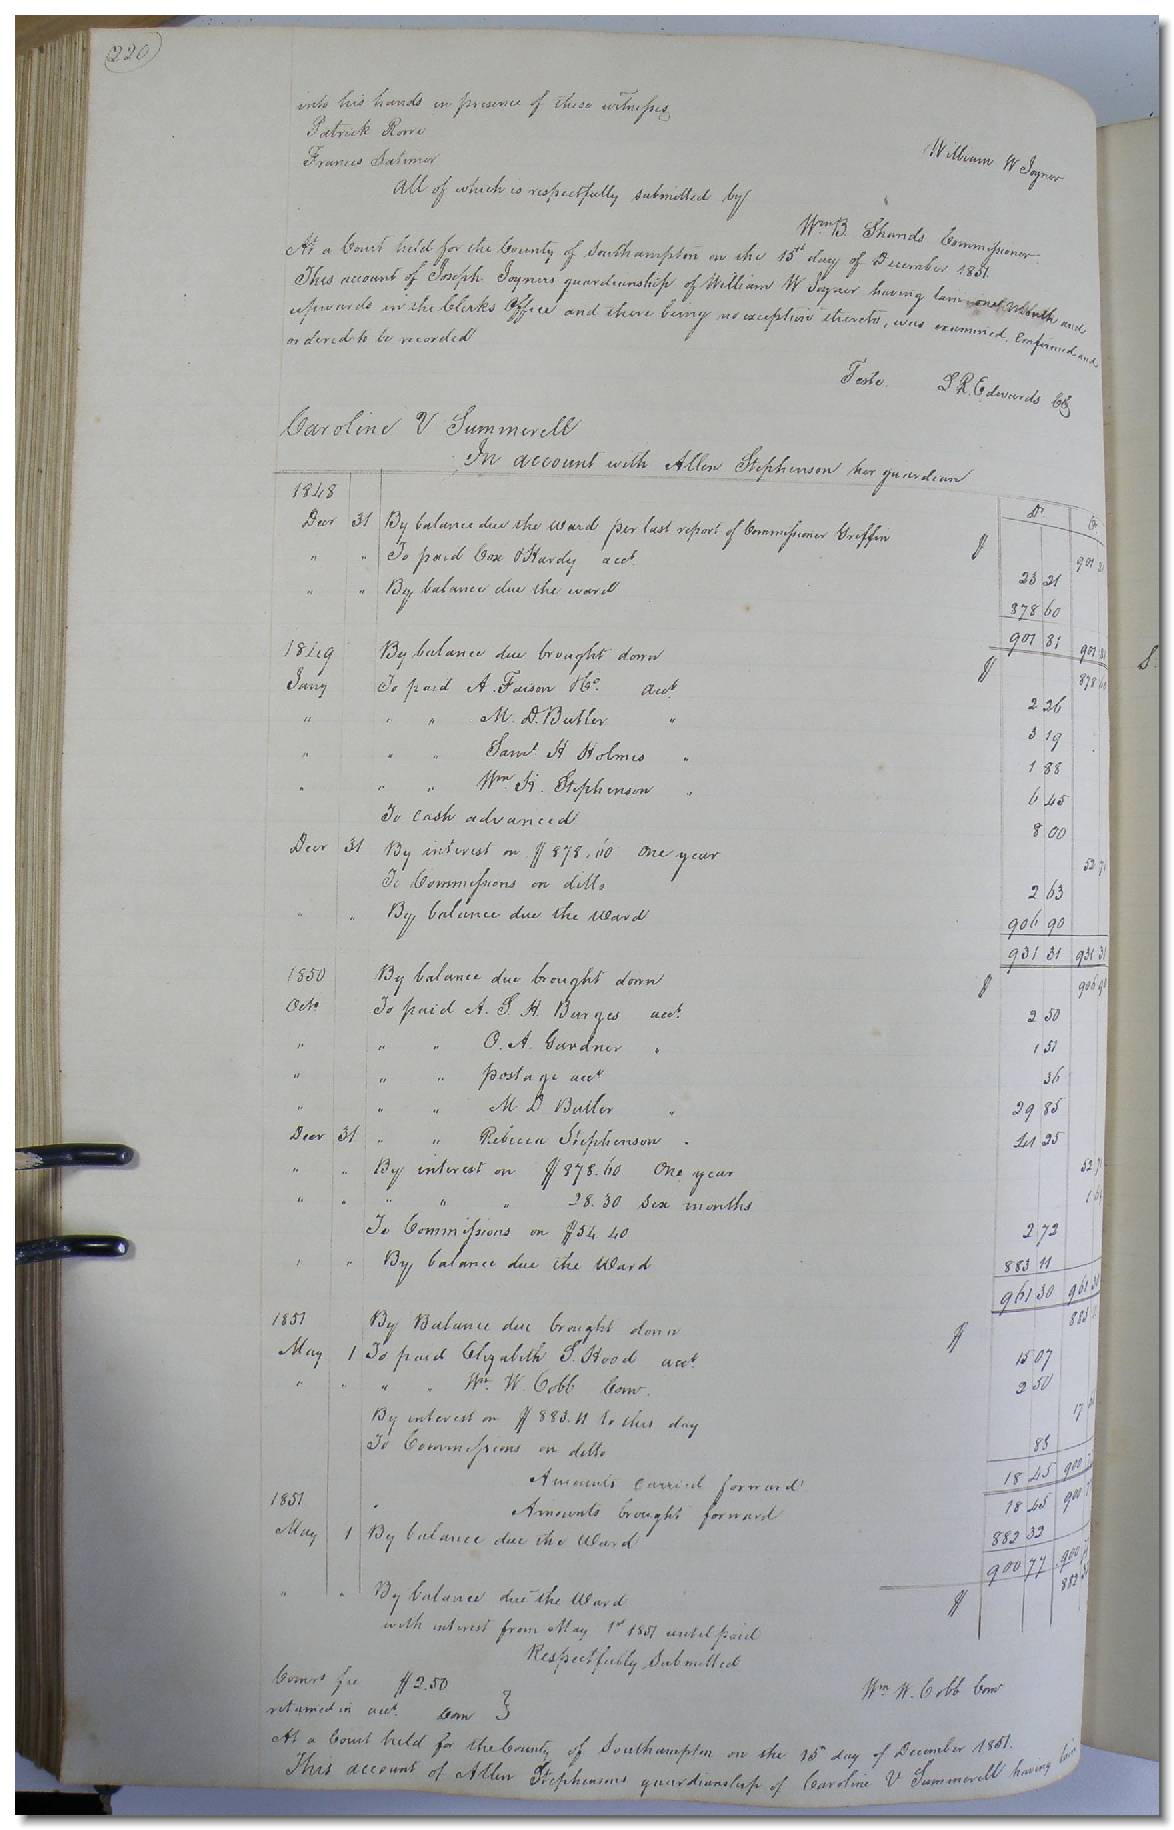 220
into his hands in presence of these witnesses
Patrick Rowe
William W Joyner
Francis Latimer
All of which is respectfully submitted by
Wm B. Shands Commissioner.
At a Court held for the County of Southampton on the 15th day of December 1851.
This account of Joseph Joyners guardianship of William W Joyner having lain one Month and
upwards in the Clerks Office and there being no exception thereto, was examined, Confirmed and
ordered to be recorded
Teste. L R. Edwards Ck
Caroline V Summerell
In account with Allen Stephenson her guardian
1848 Dr Cr
Decr 31 By balance due the Ward per last report of Commissioner Griffin $ 901 81
" " To paid Cox & Hardy acct. 23 21
" " By balance due the ward 878 60
901 81 901 81
1849 By balance due brought down $ 878 60
Jany To paid A. Faison & Co. acct. 2 26
" " " M. D. Butler " 3 19
" " " Saml H Holmes " 1 88
" " " Wm H. Stephenson " 6 45
To Cash advanced 8 00
Decr 31 By interest on $878.60 One year 52 71
To Commissions on ditto 2 63
" " By balance due the Ward 906 90
931 31 931 31
1850 By balance due brought down $ 906 90
Octo To paid A. S. H. Burges acct. 2 50
" " " O. A. Gardner " 1 51
" " " postage acct 36
" " " M D Butler " 29 85
Decr 31 " " Rebecca Stephenson " 41 25
" " By interest on $878.60 One year 52 71
" " " " " 28.30 Six months 1 69
To Commissions on $54.40 2 72
" " By balance due the Ward 883 11
961 30 961 30
1851 By Balance due brought down $ 883 11
May 1 To paid Elizabeth S. Hood acct. 15 07
" " " " Wm. W. Cobb Com. 2 50
By interest on $883.11 to this day 17 66
To Commissions on ditto 88
Amounts carried forward 18 45 900 77
1851 " Amounts brought forward 18 45 900 77
May 1 By balance due the Ward 882 32
900 77 900 77
" " By balance due the Ward $ 882 32
with interest from May 1st 1851 until paid
Respectfully Submitted
Comrs fee $2.50 Wm W. Cobb Com
returned in acct. Com }
At a Court held for the County of Southampton on the 15th day of December 1851.
This account of Allen Stephensons guardianship of Caroline V Summerell having lain